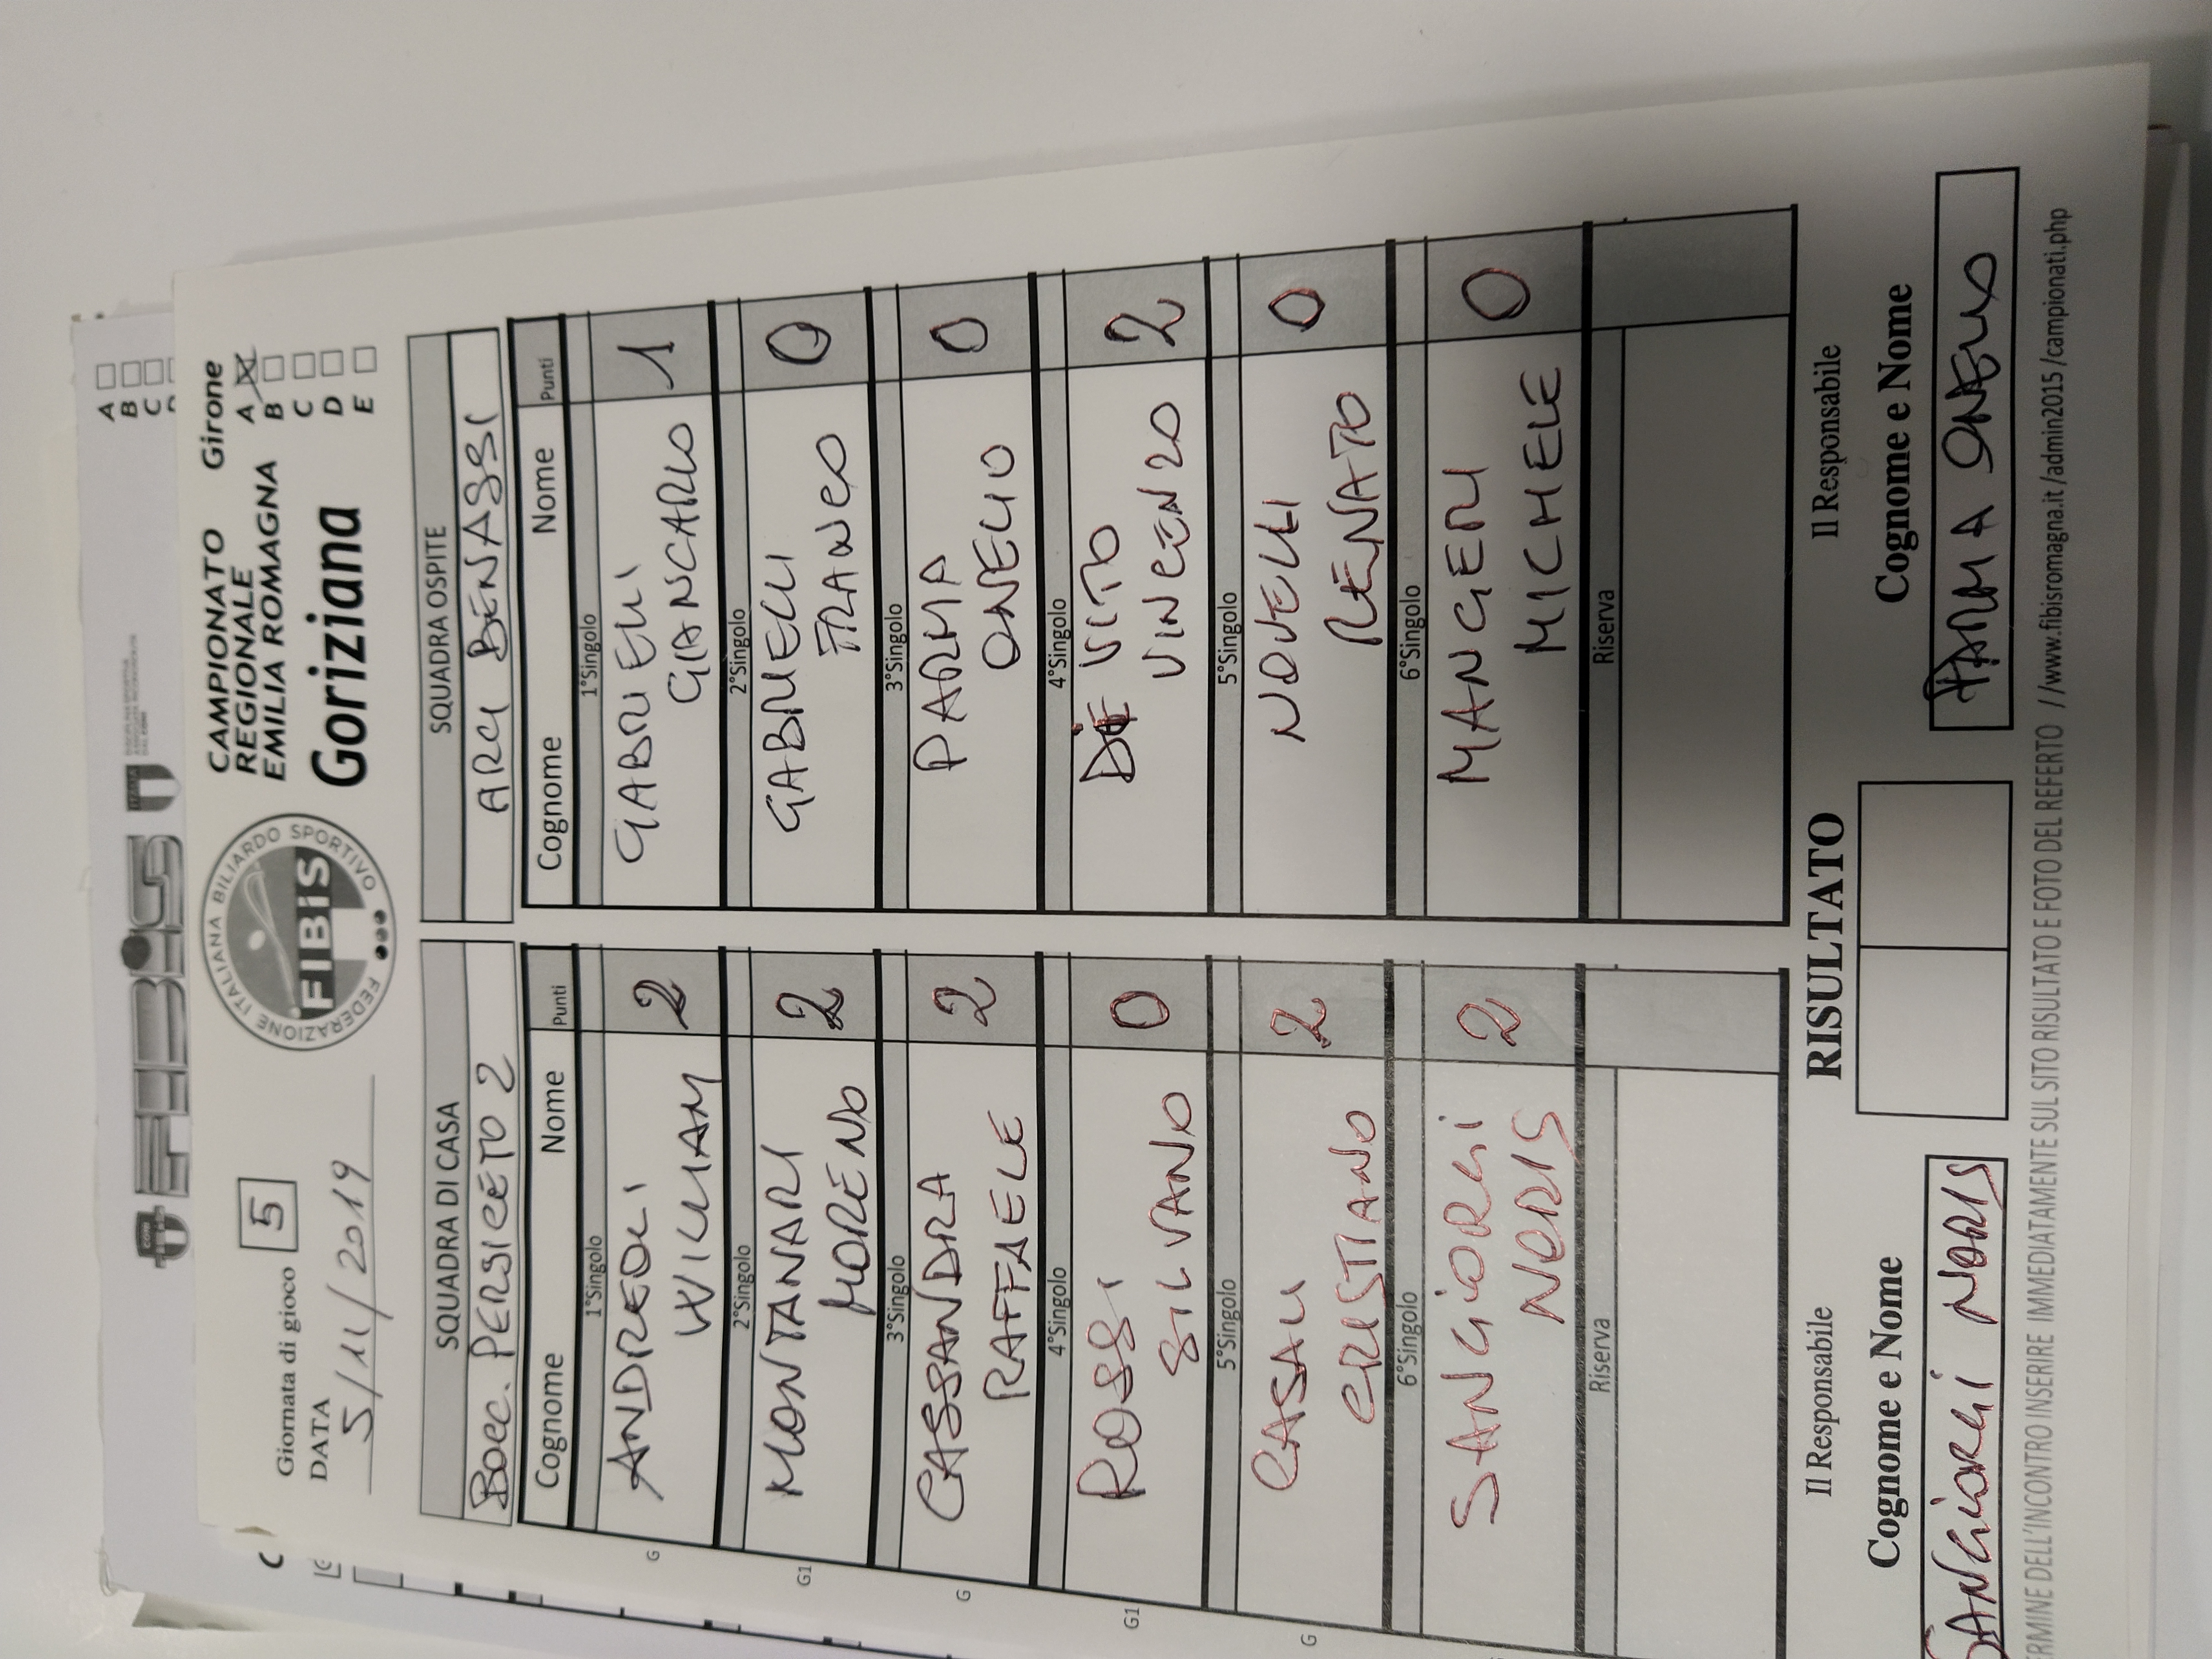 FEDERAZIONE ITALIANA BILIARDO SPORTIVO
FIBiS
CAMPIONATO
REGIONALE
EMILIA ROMAGNA
Goriziana
Girone
A
B
C
D
E
A
B
C
Giornata di gioco 5
DATA
5/11/2019
SQUADRA DI CASA
BOCC. PERSICETO 2
Cognome Nome Punti
1°Singolo
G
ANDREOLI
WILLIAM 2
2°Singolo
G1
MONTANARI
MORENO 2
3°Singolo
G
CASSANDRA
RAFFAELE 2
4°Singolo
G1
ROSSI
SILVANO 0
5°Singolo
G
CASALI
CRISTIANO 2
6°Singolo
SANGIORGI
NORIS 2
Riserva
SQUADRA OSPITE
ARCI BENASSI
Cognome Nome Punti
1°Singolo
GABRIELLI
GIANCARLO 1
2°Singolo
GABRIELLI
FRANCO 0
3°Singolo
PARMA
ONELIO 0
4°Singolo
DE VITO
VINCENZO 2
5°Singolo
NOVELLI
RENATO 0
6°Singolo
MANGERI
MICHELE 0
Riserva
Il Responsabile
Cognome e Nome
SANGIORGI NORIS
RISULTATO
Il Responsabile
Cognome e Nome
PARMA ONELIO
ERMINE DELL'INCONTRO INSERIRE IMMEDIATAMENTE SUL SITO RISULTATO E FOTO DEL REFERTO //www.fibisromagna.it/admin2015/campionati.php